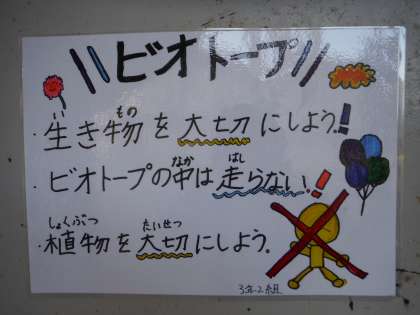 ビオトープ
・生き物を大切にしよう!!
・ビオトープの中は走らない!!
・植物を大切にしよう。
3年2組